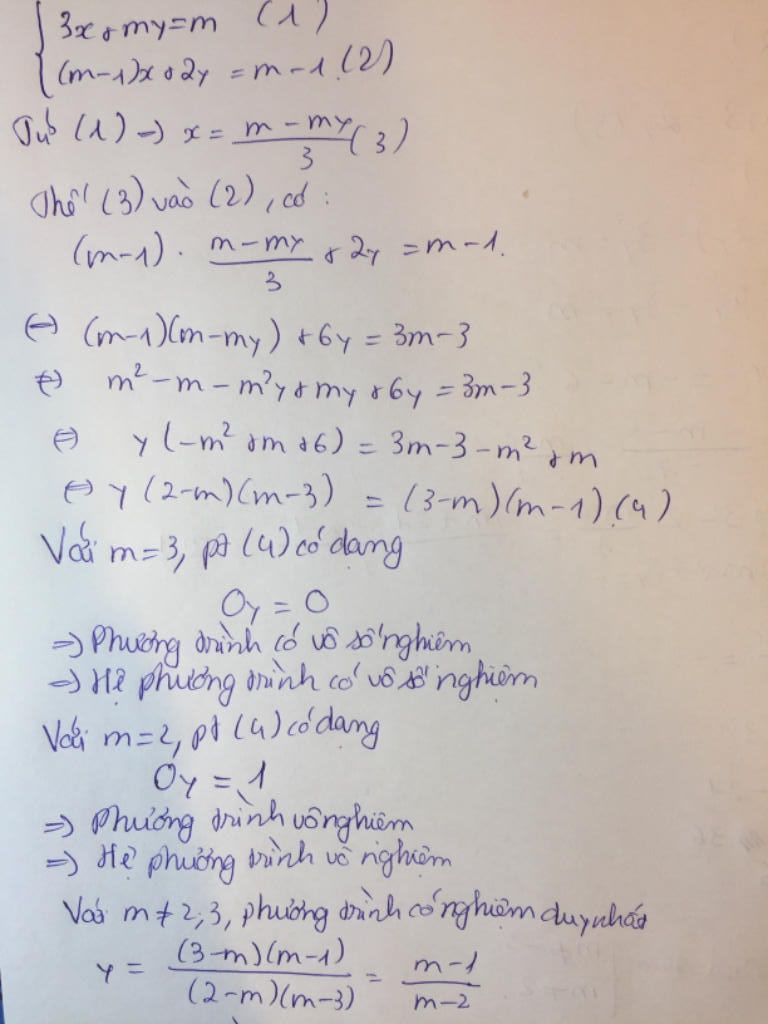 3x + my = m (1)
(m-1)x + 2y = m-1. (2)
Từ (1) => x = \frac{m - my}{3} (3)
Thế (3) vào (2), có :
(m-1) . \frac{m - my}{3} + 2y = m-1.
<=> (m-1)(m-my) + 6y = 3m-3
<=> m² - m - m²y + my + 6y = 3m-3
<=> y(-m² + m + 6) = 3m-3-m² + m
<=> y(2-m)(m-3) = (3-m)(m-1). (4)
Với m=3, pt (4) có dạng
0y = 0
=> Phương trình có vô số nghiệm
=> Hệ phương trình có vô số nghiệm
Với m=2, pt (4) có dạng
0y = 1
=> Phương trình vô nghiệm
=> Hệ phương trình vô nghiệm
Với m ≠ 2; 3, phương trình có nghiệm duy nhất
y = \frac{(3-m)(m-1)}{(2-m)(m-3)} = \frac{m-1}{m-2}